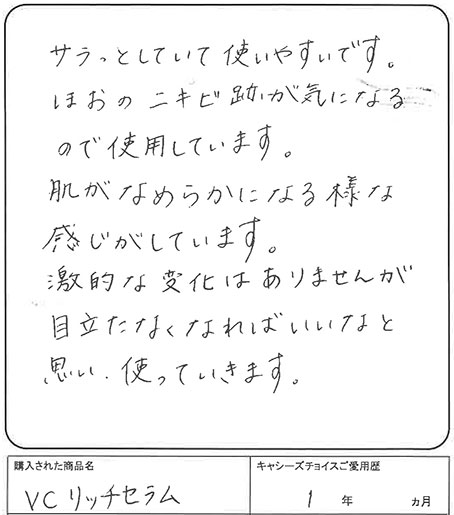 サラっとしていて使いやすいです。
ほおのニキビ跡が気になる
ので使用しています。
肌がなめらかになる様な
感じがしています。
激的な変化はありませんが
目立たなくなればいいなと
思い、使っていきます。
購入された商品名
キャシーズチョイスご愛用歴
VCリッチセラム
1年 ヵ月